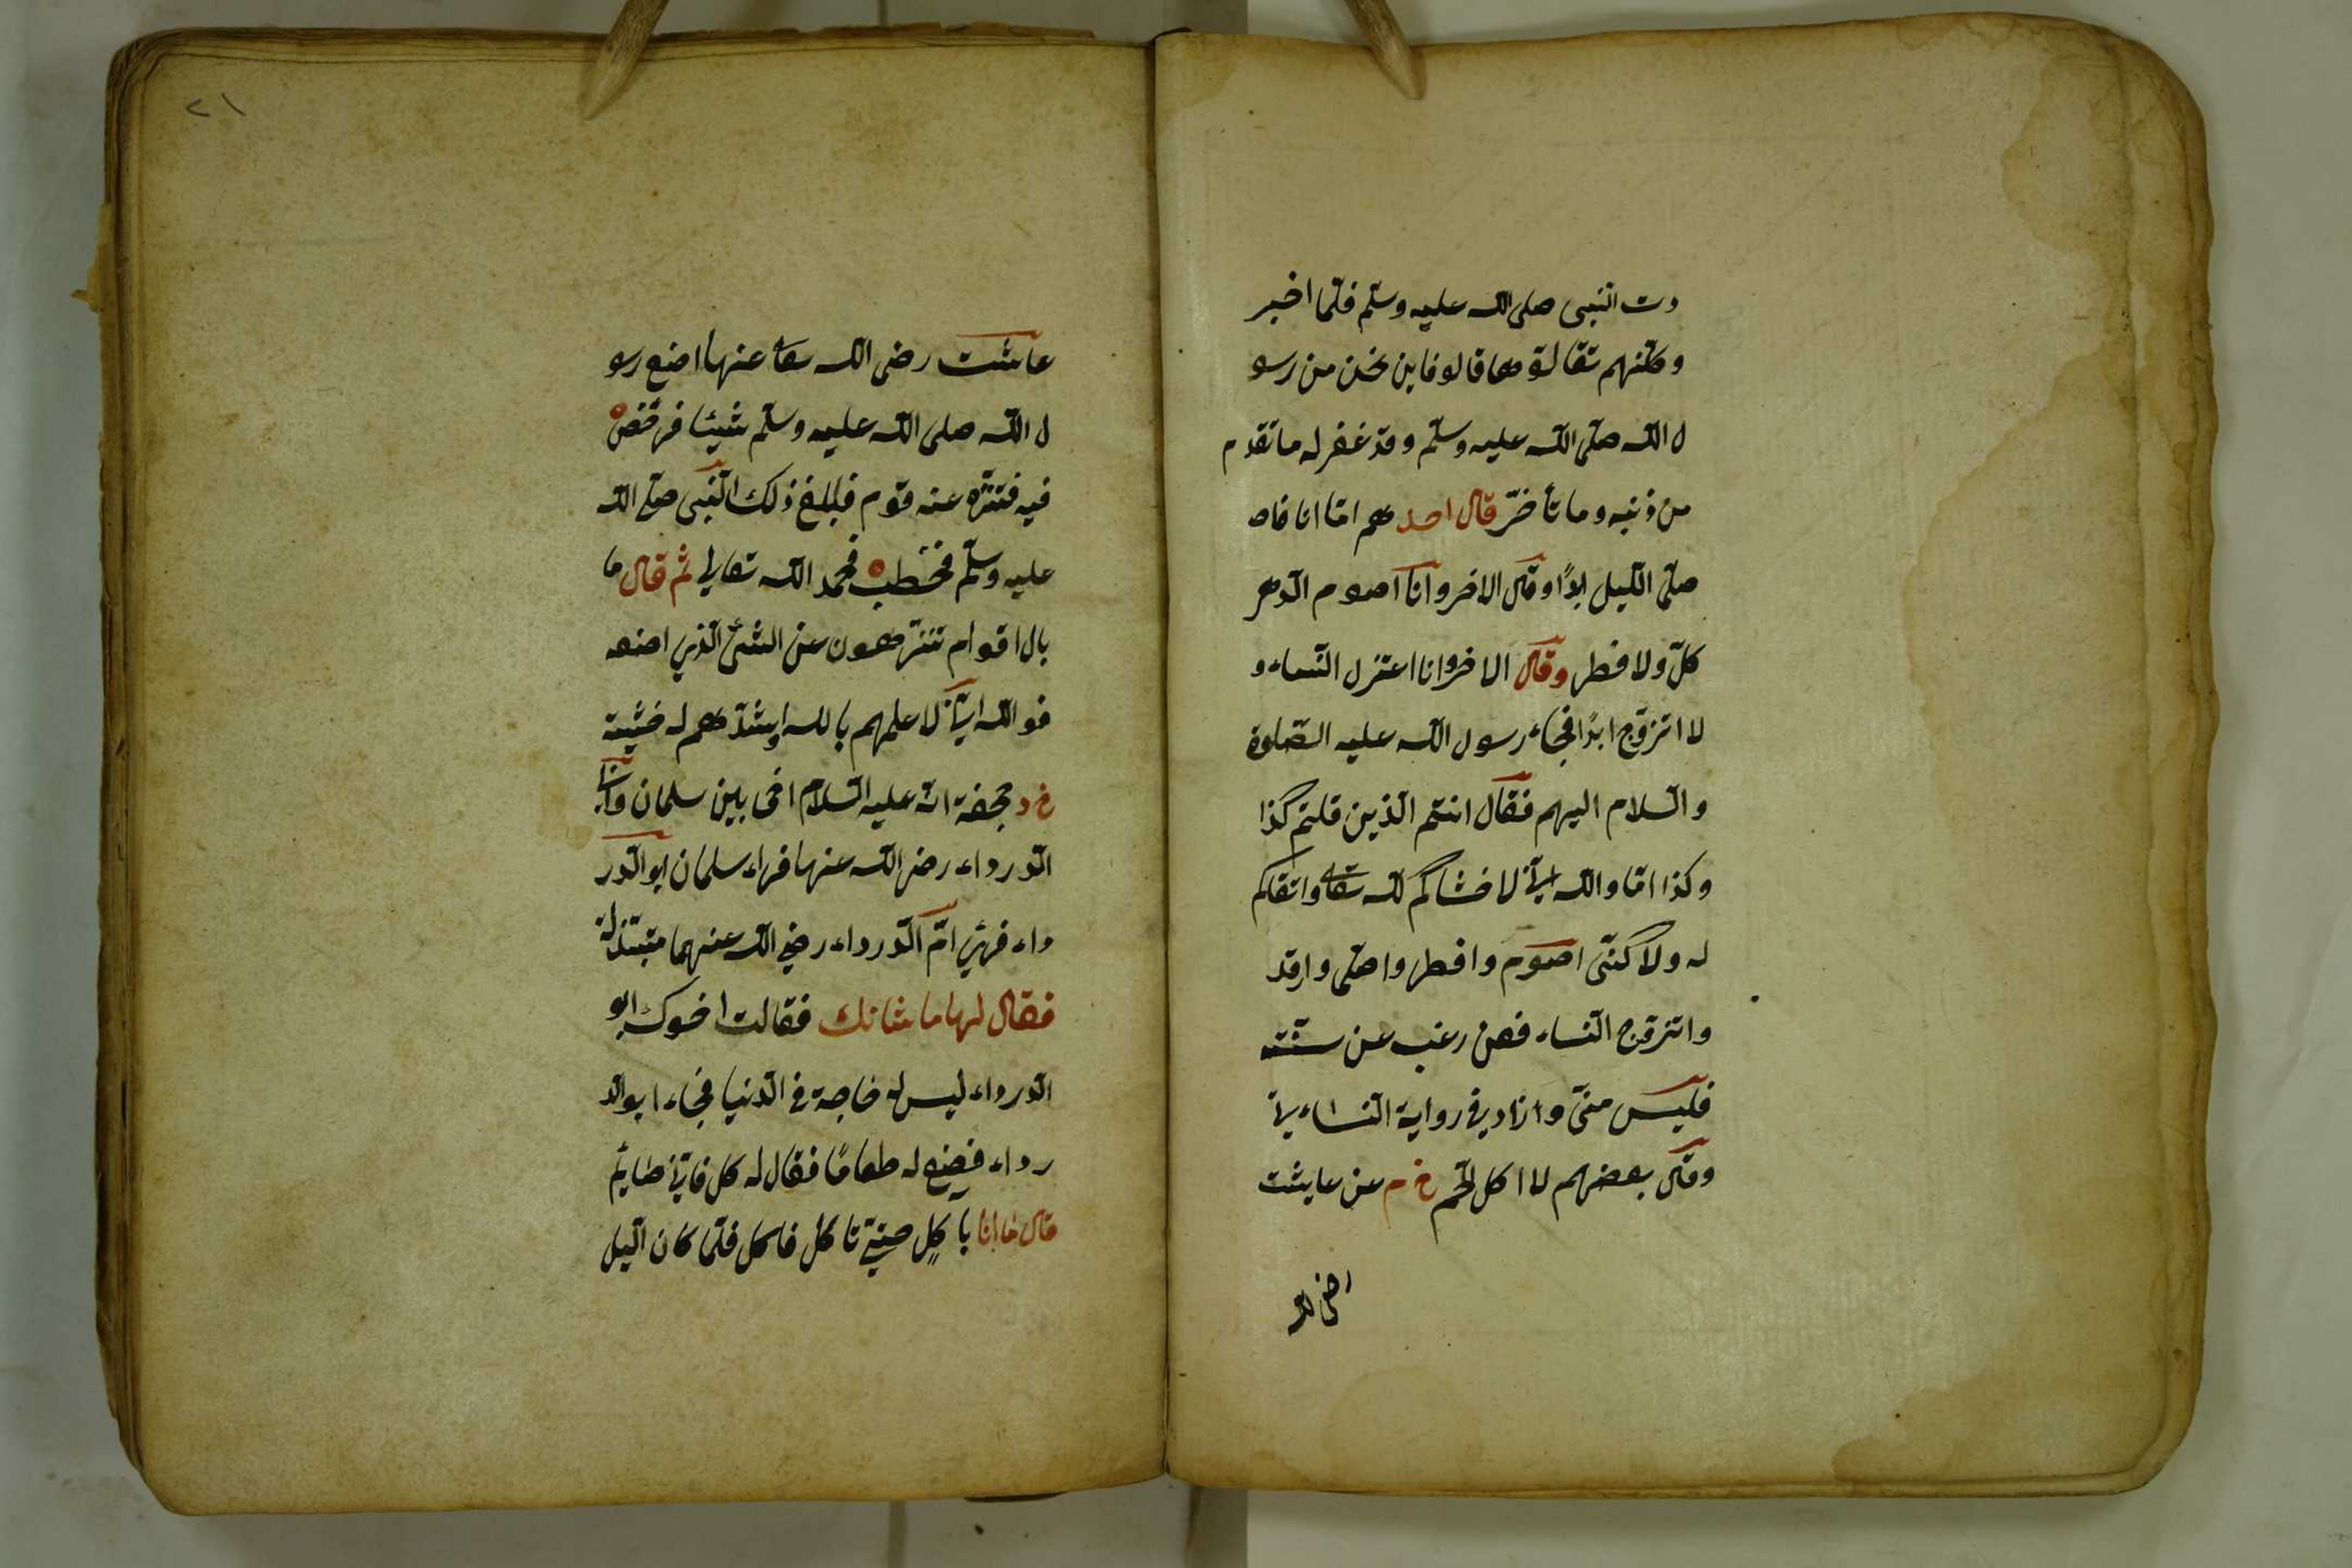 دت النبى صلى الله عليه وسلم فلما اخبر
وكٔنهم تقالوها قالو فاين نحن من رسو
ل الله صلى الله عليه وسلم وقد غفر له ما تقدم
من ذنبه وما تأخر قال احدهم امّا انا فاصـ
صلّى الليل ابدًا وقال الاخر وانا اصوم الدهر
كلّ ولا فطر وقال الاخر وانا اعتزل النّساء و
لا اتزوّج ابدًا فجاء رسول الله عليه الصّلوة
والسلام اليهم فقال انتم الذين قلتم كذا
وكذا امّا والله انّي لاخشاكم لله تعالى واتقاكم
له ولاكنّى اصوم وافطر واصلّى وارقد
واتزوّج النّساء فمن رغب عن سنّتى
فليس منّى وازاد في رواية النّساءى
وقال بعضهم لا اكل لحم خ م عن عايشت
اصنع
٢١
عاشت رضى الله تعا عنها اصنع رسو
ل الله صلى الله عليه وسلّم شيئا فرخّص
فيه فتنزّه عنه قوم فبلغ ذلك النّبى صلى الله
عليه وسلّم فخطب فحمد الله تعالى ثم قال ما
بال اقوام تنزّهون عن الشئ الّذي اصنعه
فوالله انّي لاعلمهم بالله واشدّهم له خشيته
خ د جحفة انّه عليه السّلام اخى بين سلمان وابى
الدّرداء رضى الله عنها فراء سلمان ابو الدّر
داء فرئي امّ الدّرداء رضي الله عنهما متبذّلة
فقال لها ما شانك فقالت اخوك ابو
الدّرداء ليس له حاجة في الدّنيا فجاء ابو الد
رداء فصنع له طعامًا فقال له كل فانّي صايمٌ
قال ما انا باكلٍ حتّى تاكل فاكل فلمّا كان اليل